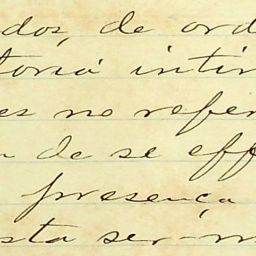 dos, de ord
toria intir
es no refer
de se effe
presença
sta ser-m